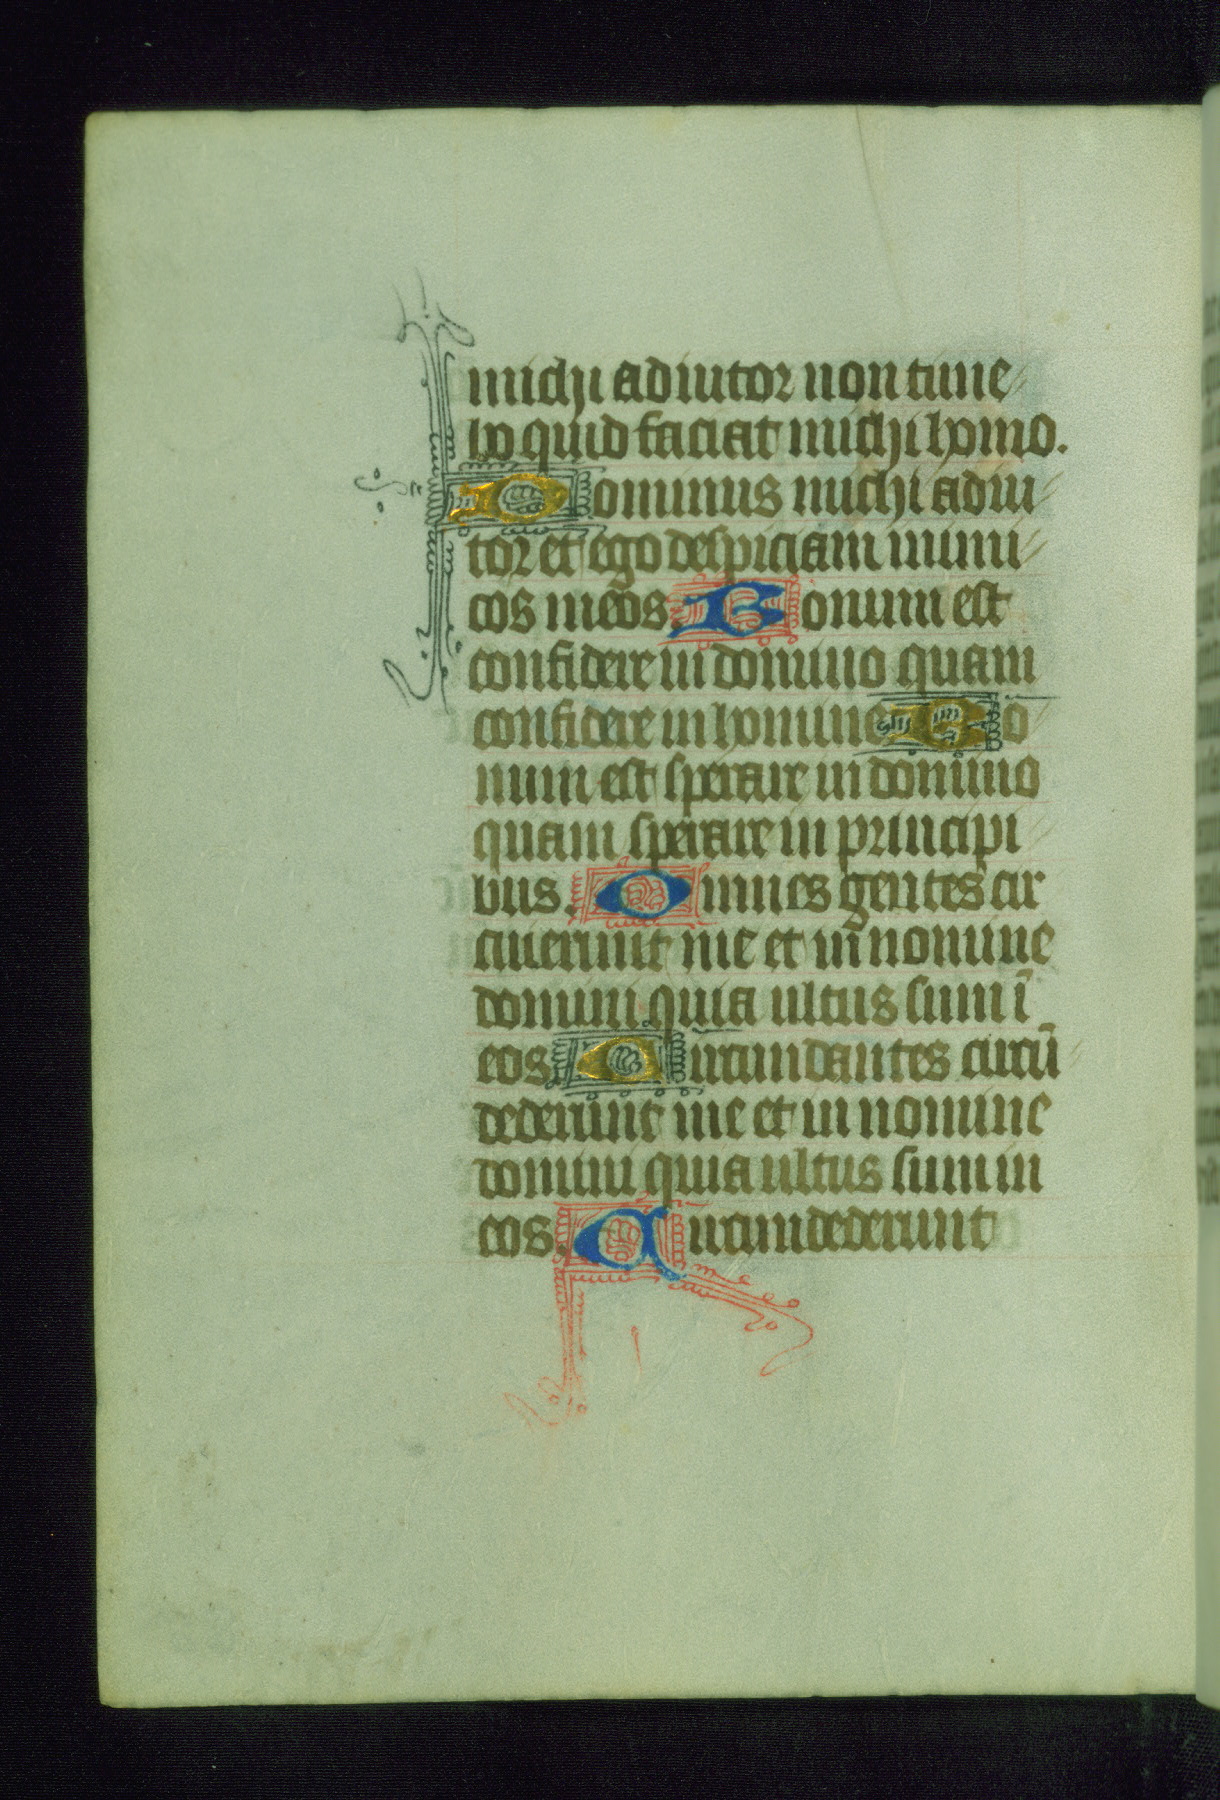 michi adiutor non time
bo quid faciat michi homo.
Dominus michi adiu
tor et ego despiciam inimi
cos meos. Bonum est
confidere in domino quam
confidere in homine Bo
num est sperare in domino
quam sperare in principi
bus. Omnes gentes cir
cuierunt me et in nomine
domini quia ultus sum ī
eos. Circumdantes circū
dederunt me et in nomine
domini quia ultus sum in
eos. Circumdederunt